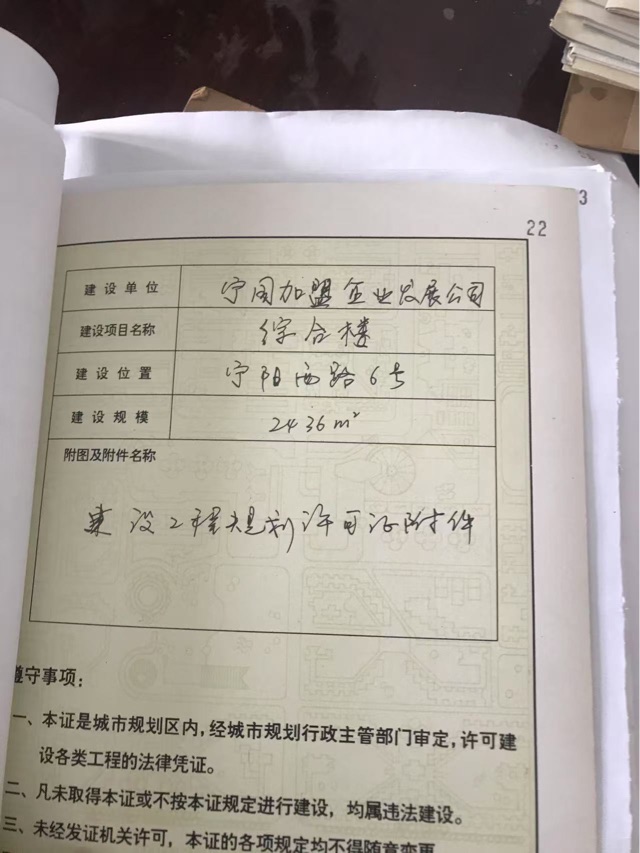 3
22
建设单位 宁国加盟企业发展公司
建设项目名称 综合楼
建设位置 宁阳西路6号
建设规模 2436m²
附图及附件名称
建设工程规划许可证附件
遵守事项：
一、本证是城市规划区内，经城市规划行政主管部门审定，许可建
设各类工程的法律凭证。
二、凡未取得本证或不按本证规定进行建设，均属违法建设。
三、未经发证机关许可，本证的各项规定均不得随意变更